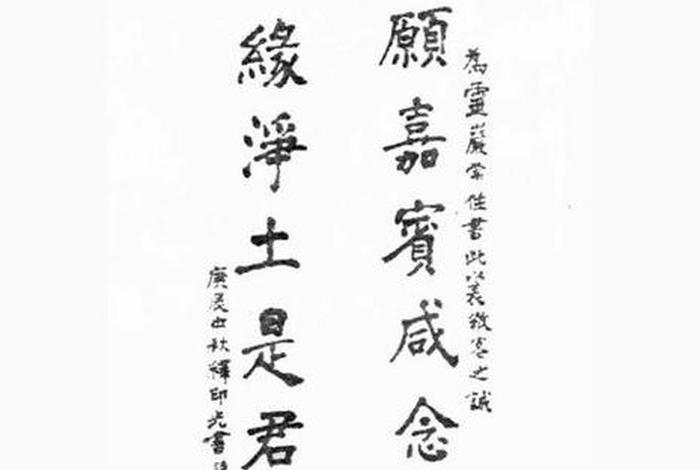 為靈巖常住書此以表敬客之誠
願嘉賓咸念
緣淨土是君
庚辰中秋釋印光書